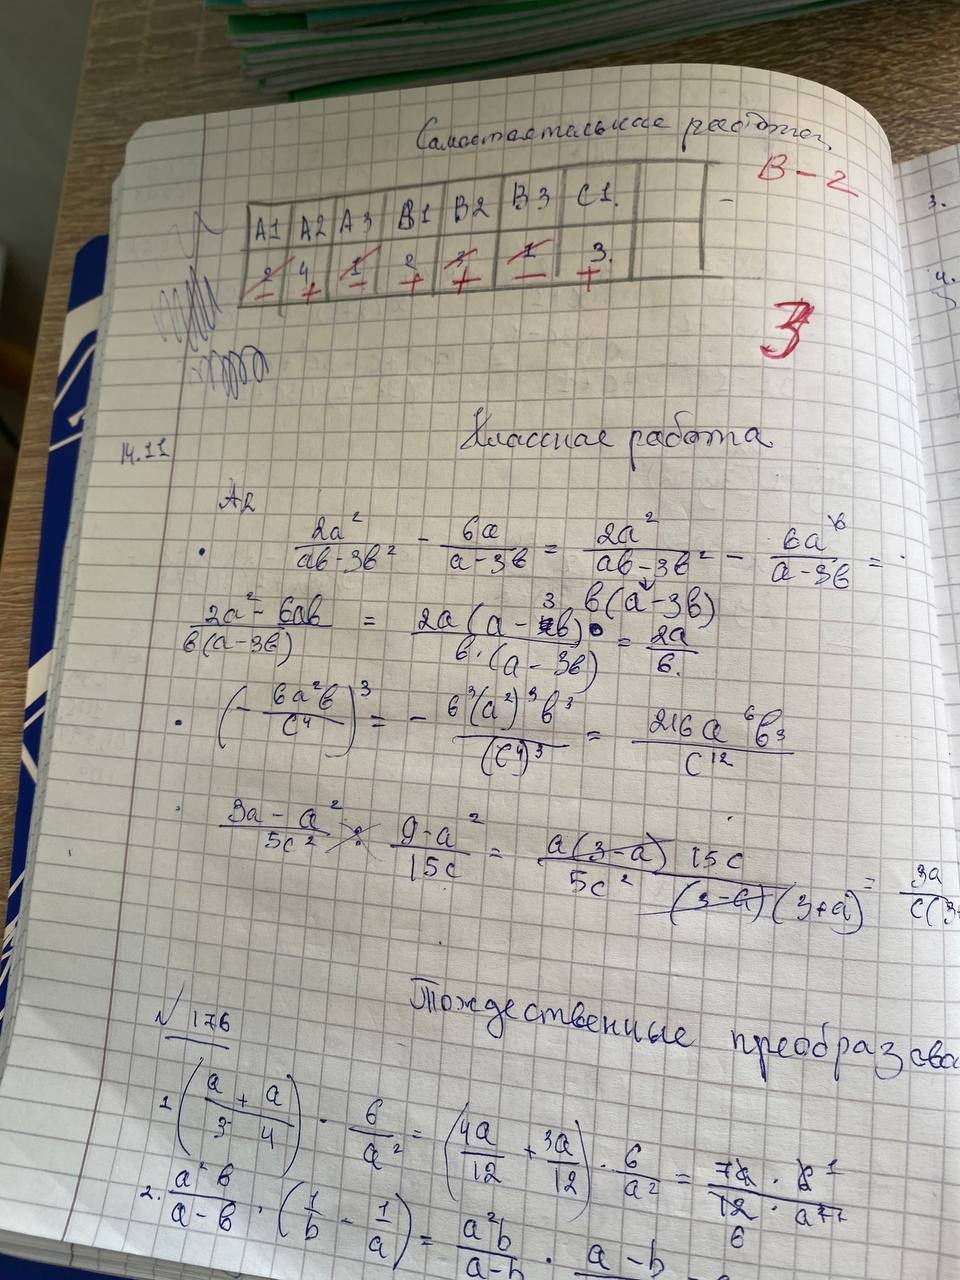 Самостоятельная работа
В-2
А1 А2 А3 В1 В2 В3 С1.
2 4 1 2 3 1 3.
- + - + + - +
3
14.11
Классная работа
А2
2a²/(ab-3b²) - 6a/(a-3b) = 2a²/(ab-3b²) - 6a\b/(a-3b) =
b(a-3b)
(2a²-6ab)/(b(a-3b)) = 2a(a-3b)/(b·(a-3b)) = 2a/b.
(-6a²b/c⁴)³ = -6³(a²)³b³/(c⁴)³ = 216a⁶b³/c¹²
(3a-a²)/5c² : (9-a²)/15c = a(3-a) 15c/(5c² (3-a)(3+a)) = 3a/c(3+
Тождественные преобразова
№176
1 (a/3 + a/4) · 6/a² = (4a/12 + 3a/12) · 6/a² = 7a · 6 1/(12 · a²)
2. a²b/(a-b) · (1/b - 1/a) = a²b/(a-b) · a-b
3.
4.